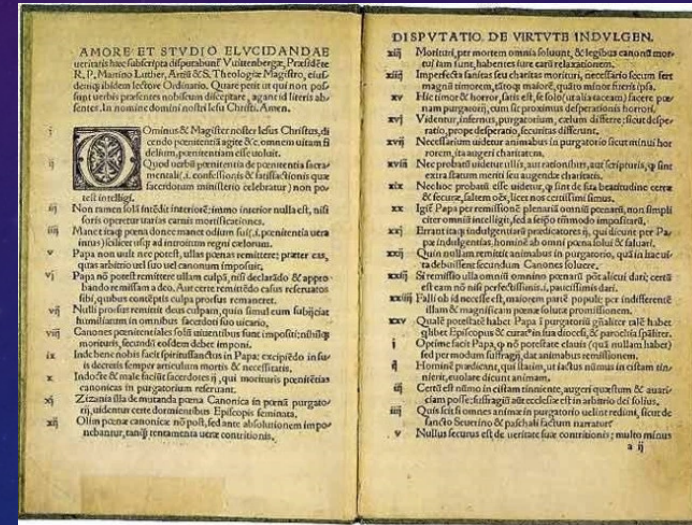 AMORE ET STVDIO ELVCIDANDAE
ueritatis hæc subscripta disputabunť Vuittenbergæ, Præsidēte
R. P. Martino Luther, Artiū & S. Theologiæ Magistro, eius/
demq̃ ibidem lectore Ordinario. Quare petit ut qui non pos/
sunt uerbis præsentes nobiscum disceptare, agant id literis ab/
sentes. In nomine domini nostri Iesu Christi. Amen.
i Dominus & Magister noster Iesus Christus, di/
cendo pœnitentiā agite &c. omnem uitam fi
delium, pœnitentiam esse uoluit.
ij Quod uerbū pœnitentia de pœnitentia sacra/
mentali(.i. confessionis & satisfactionis quæ
sacerdotum ministerio celebratur) non po/
test intelligi.
iij Non tamen solā intēdit interiorē: immo interior nulla est, nisi
foris operetur uarias carnis mortificationes.
iiij Manet itaq̃ pœna donec manet odium sui(.i. pœnitentia uera
intus) scilicet usq̃ ad introitum regni cælorum.
v Papa non uult nec potest, ullas pœnas remittere; præter eas,
quas arbitrio uel suo uel canonum imposuit.
vj Papa nō potest remittere ullam culpā, nisi declarādo & appro/
bando remissam a deo. Aut certe remittēdo casus reseruatos
sibi, quibus contēptis culpa prorsus remaneret.
vij Nulli prorsus remittit deus culpam, quin simul eum subijciat
humiliatum in omnibus sacerdoti suo uicario.
viij Canones pœnitentiales solū uiuentibus sunt impositi; nihilq̃
morituris, secundū eosdem debet imponi.
ix Inde bene nobis facit spiritussanctus in Papa; excipiēdo in su/
is decretis semper articulum mortis & necessitatis.
x Indocte & male faciūt sacerdotes ij, qui morituris pœnitētias
canonicas in purgatorium reseruant.
xj Zizania illa de mutanda pœna Canonica in pœnā purgato/
rij, uidentur certe dormientibus Episcopis seminata.
xij Olim pœnæ canonicæ nō post, sed ante absolutionem impo/
nebantur, tanq̃ tentamenta ueræ contritionis.
DISPVTATIO DE VIRTVTE INDVLGEN.
xiij Morituri, per mortem omnia soluunt, & legibus canonū mor/
tui iam sunt, habentes iure earū relaxationem.
xiiij Imperfecta sanitas seu charitas morituri, necessario secum fert
magnū timorem, tātoq̃ maiorē, quāto minor fuerit ipsa.
xv Hic timor & horror, satis est, se solo (ut alia taceam) facere pœ/
nam purgatorij, cum sit proximus desperationis horrori.
xvj Videntur, infernus, purgatorium, cælum differre; sicut despe/
ratio, prope desperatio, securitas differunt.
xvij Necessarium uidetur animabus in purgatorio sicut minui hor
rorem, ita augeri charitatem.
xviij Nec probatū uidetur ullis, aut rationibus, aut scripturis, q̨ sint
extra statum meriti seu augendæ charitatis.
xix Nec hoc probatū esse uidetur, q̨ sint de sua beatitudine certæ
& securæ, saltem oēs, licet nos certissimi simus.
xx Igiť Papa per remissionē plenariā omniū pœnarū, non simpli
citer omniū intelligit, sed a seipō tm̄modo impositarū.
xxj Errant itaq̃ indulgentiarū prædicatores ij, qui dicunt per Pa
pæ indulgentias, hominē ab omni pœna solui & saluari.
xxij Quin nullam remittit animabus in purgatorio, quā in hac ui/
ta debuissent secundum Canones soluere.
xxiij Si remissio ulla omniū omnino pœnarū pōt alicui dari; certū
est eam nō nisi perfectissimis .i. paucissimis dari.
xxiiij Falli ob id necesse est, maiorem partē populi; per indifferentē
illam & magnificam pœnæ solutæ promissionem.
xxv Qualē potestatē habet Papa ī purgatoriū gñaliter talē habet
q̃libet Episcopus & curatꝰ in sua diocesi, & parochia spāliter.
i Optime facit Papa, q̨ nō potestate clauis (quā nullam habet)
sed per modum suffragij, dat animabus remissionem.
ij Hominē prædicant, qui statim, ut iactus nūmus in cistam tin/
nierit, euolare dicunt animam.
iij Certū est nūmo in cistam tinniente, augeri quæstum & auari/
ciam posse; suffragiū aūt ecclesiæ est in arbitrio dei solius.
iiij Quis scit si omnes animæ in purgatorio uelint redimi, sicut de
sancto Seuerino & paschali factum narratur
v Nullus securus est de ueritate suæ contritionis; multo minus
a ij